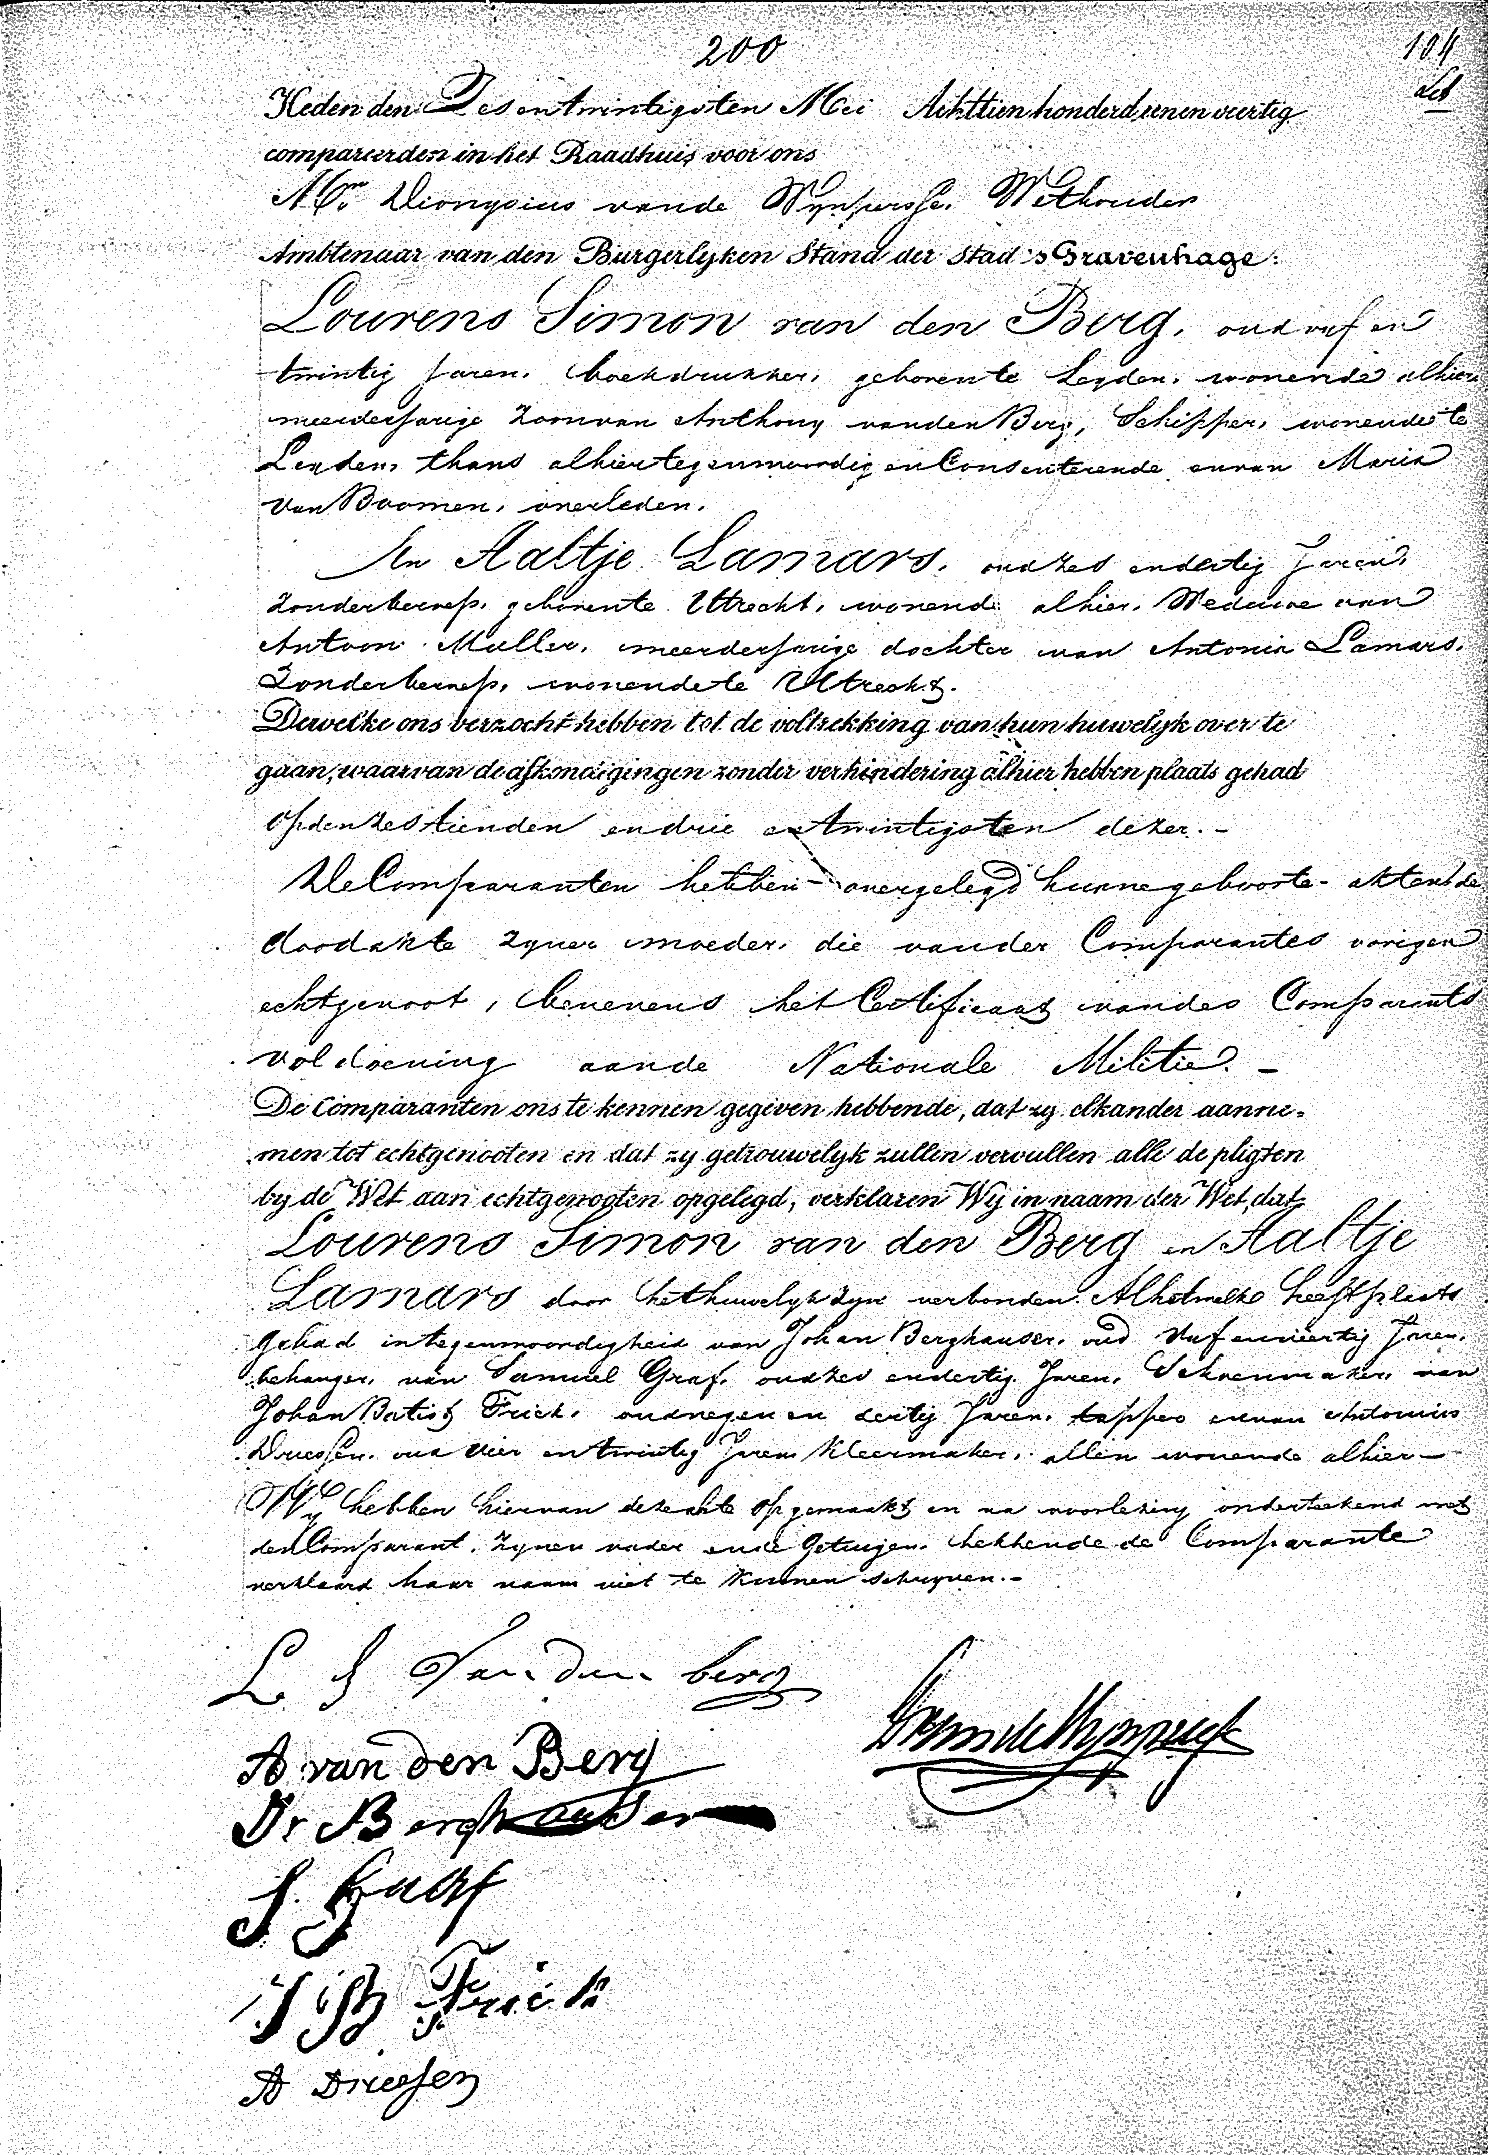 200
104
Heden den Zes en twintigsten Mei Achttien honderd een en veertig
compareerden in het Raadhuis voor ons
Mr. Dionysius van de Wijnpersse, Wethouder
Ambtenaar van den Burgerlyken Stand der Stad 's Gravenhage:
Lourens Simon van den Berg, oud vyf en
twintig Jaren, boekdrukker, geboren te Leyden, wonende alhier
meerderjarige Zoon van Anthony van den Berg, Schipper, wonende te
Leyden, thans alhier tegenwoordig en Consenterende en van Maria
van Boomen, overleden.
En Aaltje Lamars, oud zes en dertig Jaren,
Zonder beroep, geboren te Utrecht, wonende alhier, Weduwe van
Antoon Muller, meerderjarige dochter van Antonia Lamars,
Zonder beroep, wonende te Utrecht.
Dewelke ons verzocht hebben tot de voltrekking van hun huwelyk over te
gaan, waarvan de afkondigingen zonder verhindering alhier hebben plaats gehad
op den zestienden en drie en twintigsten dezer. -
De Comparanten hebben overgelegd hunne geboorte- akten de
doodakte zyner moeder, die van der Comparantes vorigen
echtgenoot, benevens het Certificaat van des Comparants
voldoening aan de Nationale Militie. -
De Comparanten ons te kennen gegeven hebbende, dat zy elkander aanne-
men tot echtgenooten en dat zy getrouwelyk zullen vervullen alle de pligten
by de Wet aan echtgenooten opgelegd, verklaren Wy in naam der Wet, dat
Lourens Simon van den Berg en Aaltje
Lamars door het huwelyk zyn verbonden. Al hetwelke heeft plaats
gehad in tegenwoordigheid van Johan Berghauser, oud Vyf en veertig Jaren,
behanger, van Samuel Graf, oud zes en dertig Jaren, Schoenmaker, van
Johan Batist Frick, oud negen en dertig Jaren, tapper en van Antonius
Driessen, oud vier en twintig Jaren Kleermaker, allen wonende alhier -
Wy hebben hiervan deze akte opgemaakt en na voorlezing onderteekend met
den Comparant, zynen vader en de Getuigen, hebbende de Comparante
verklaard haar naam niet te kunnen schryven. -
L S Van den berg
A van den Berg
Dr Berghauser
S. Graf
J Bt Frick
A Driessen